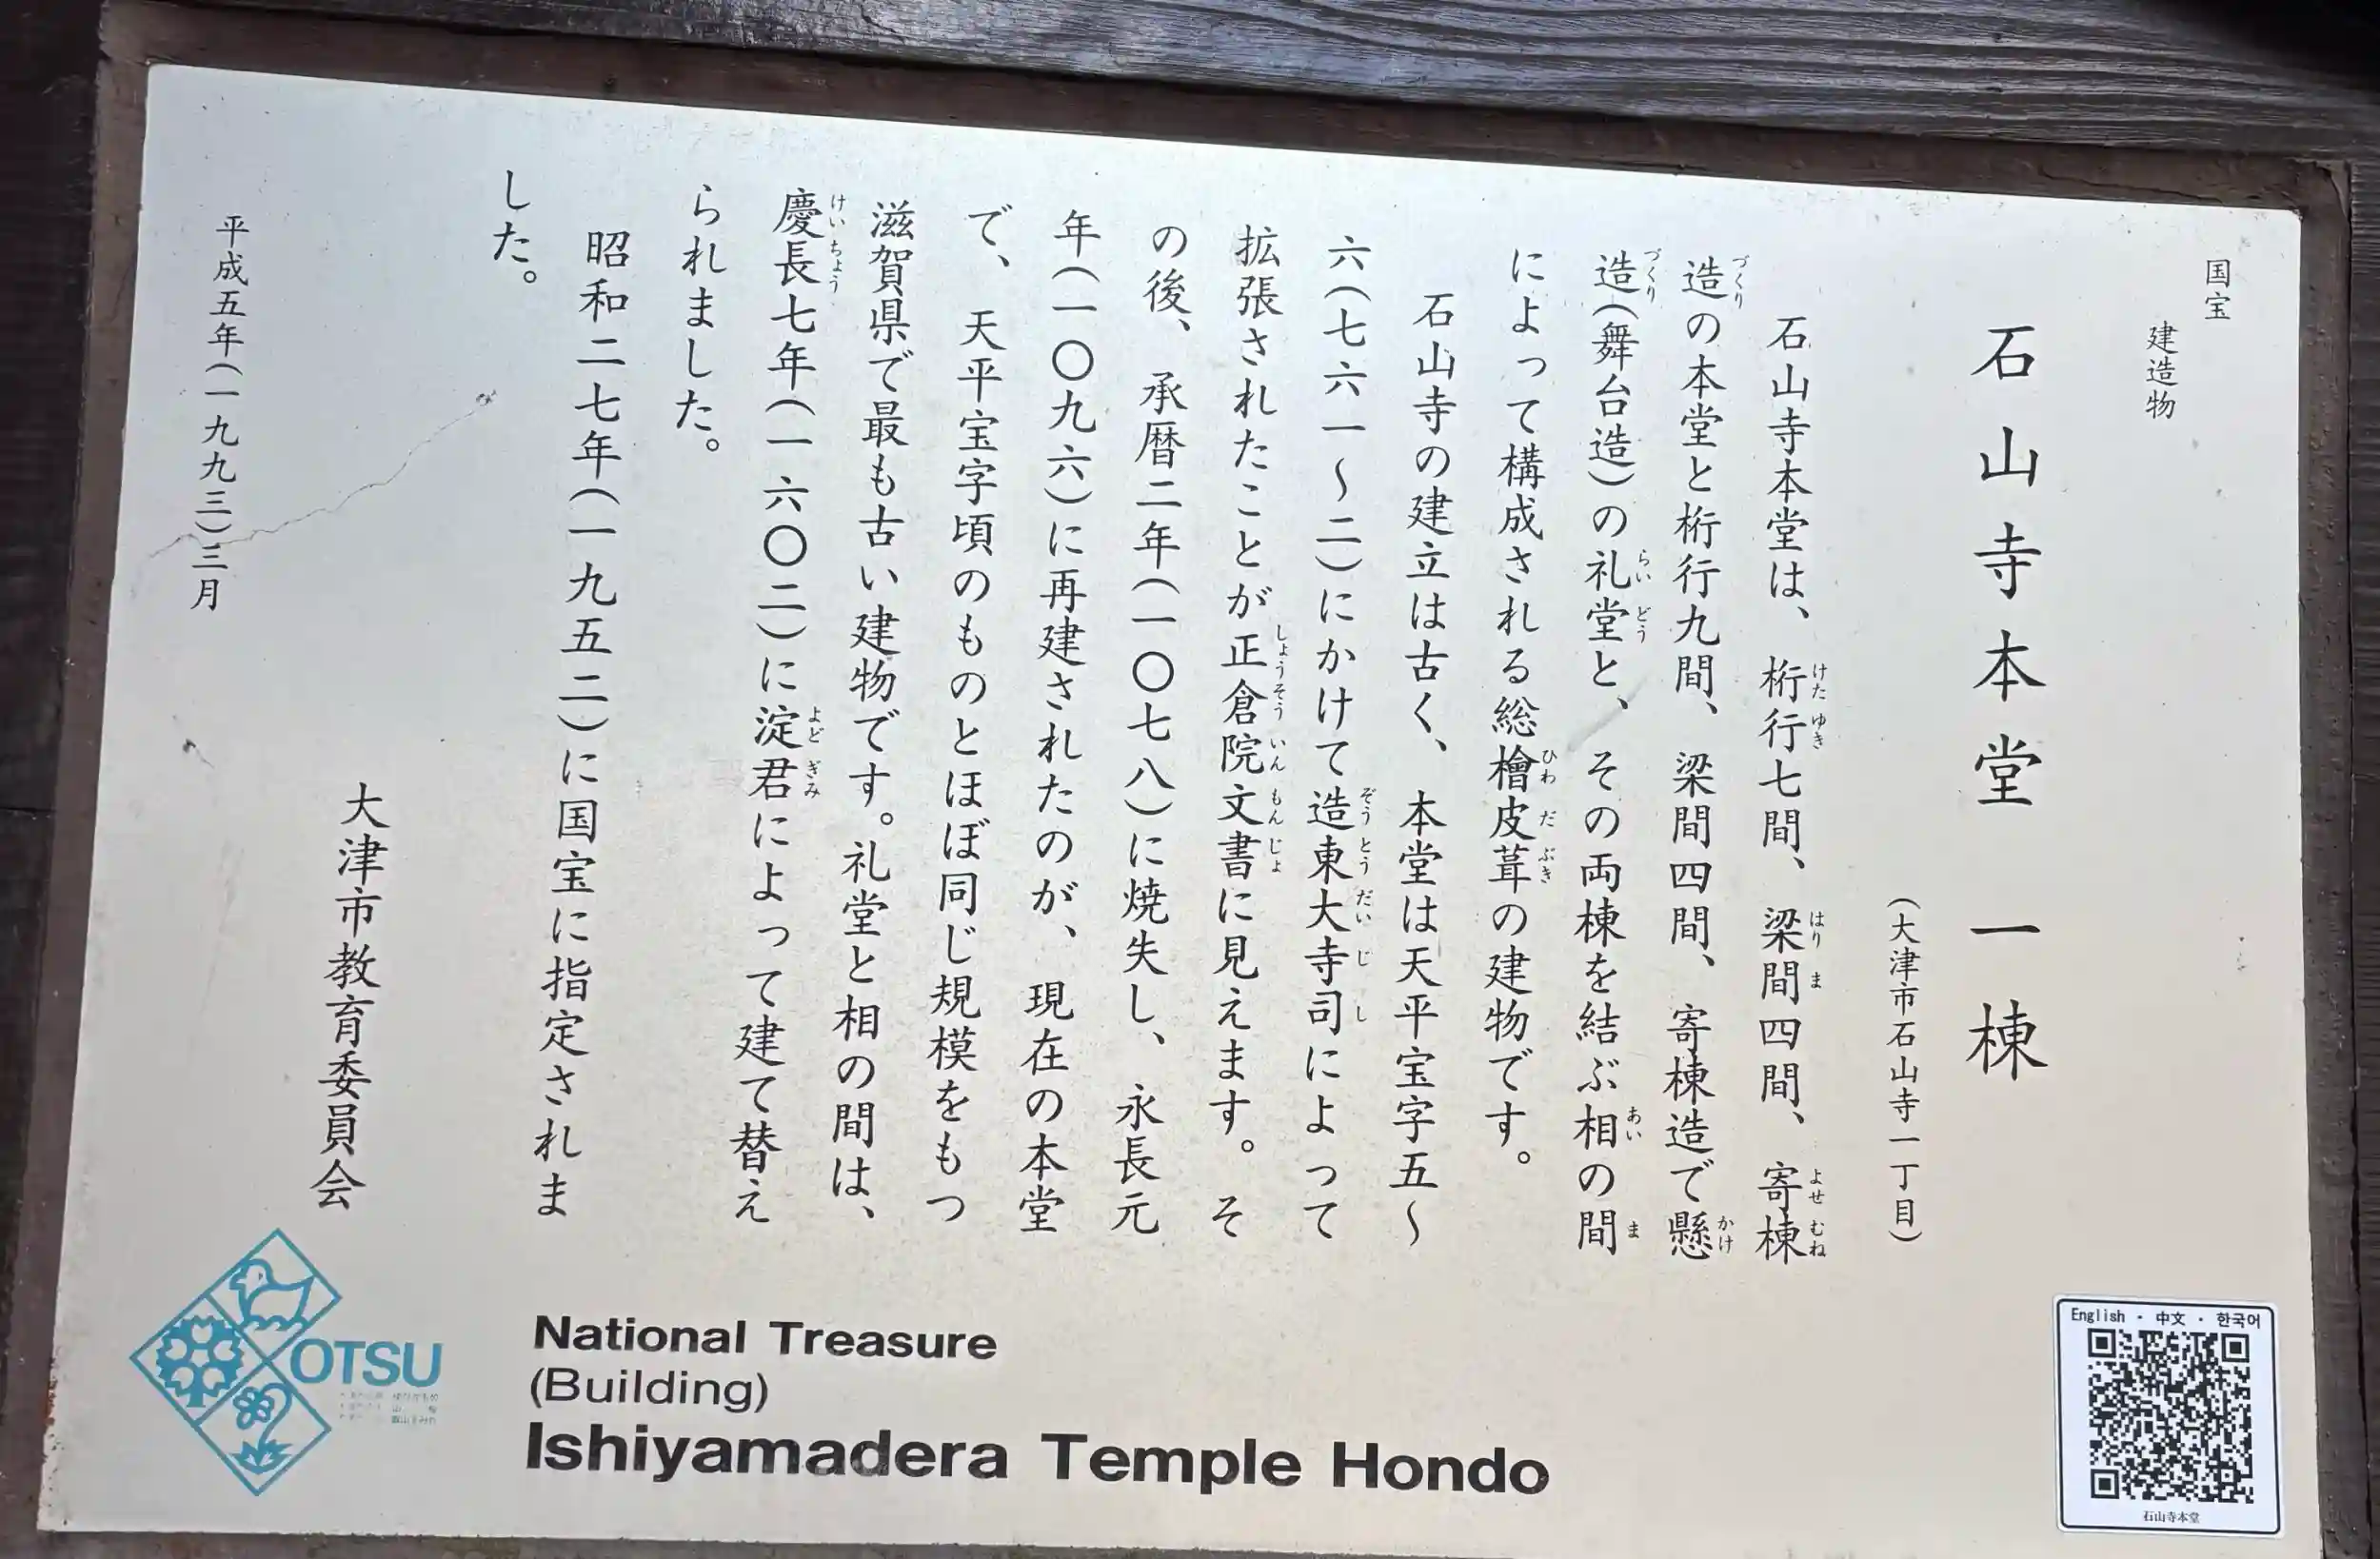 国宝
建造物
石山寺本堂 一棟
（大津市石山寺一丁目）
石山寺本堂は、桁行七間、梁間四間、寄棟
造の本堂と桁行九間、梁間四間、寄棟造で懸
造（舞台造）の礼堂と、その両棟を結ぶ相の間
によって構成される総檜皮葺の建物です。
石山寺の建立は古く、本堂は天平宝字五〜
六（七六一〜二）にかけて造東大寺司によって
拡張されたことが正倉院文書に見えます。そ
の後、承暦二年（一〇七八）に焼失し、永長元
年（一〇九六）に再建されたのが、現在の本堂
で、天平宝字頃のものとほぼ同じ規模をもつ
滋賀県で最も古い建物です。礼堂と相の間は、
慶長七年（一六〇二）に淀君によって建て替え
られました。
昭和二七年（一九五二）に国宝に指定されま
した。
平成五年（一九九三）三月
大津市教育委員会
OTSU
National Treasure
(Building)
Ishiyamadera Temple Hondo
English・中文・한국어
石山寺本堂